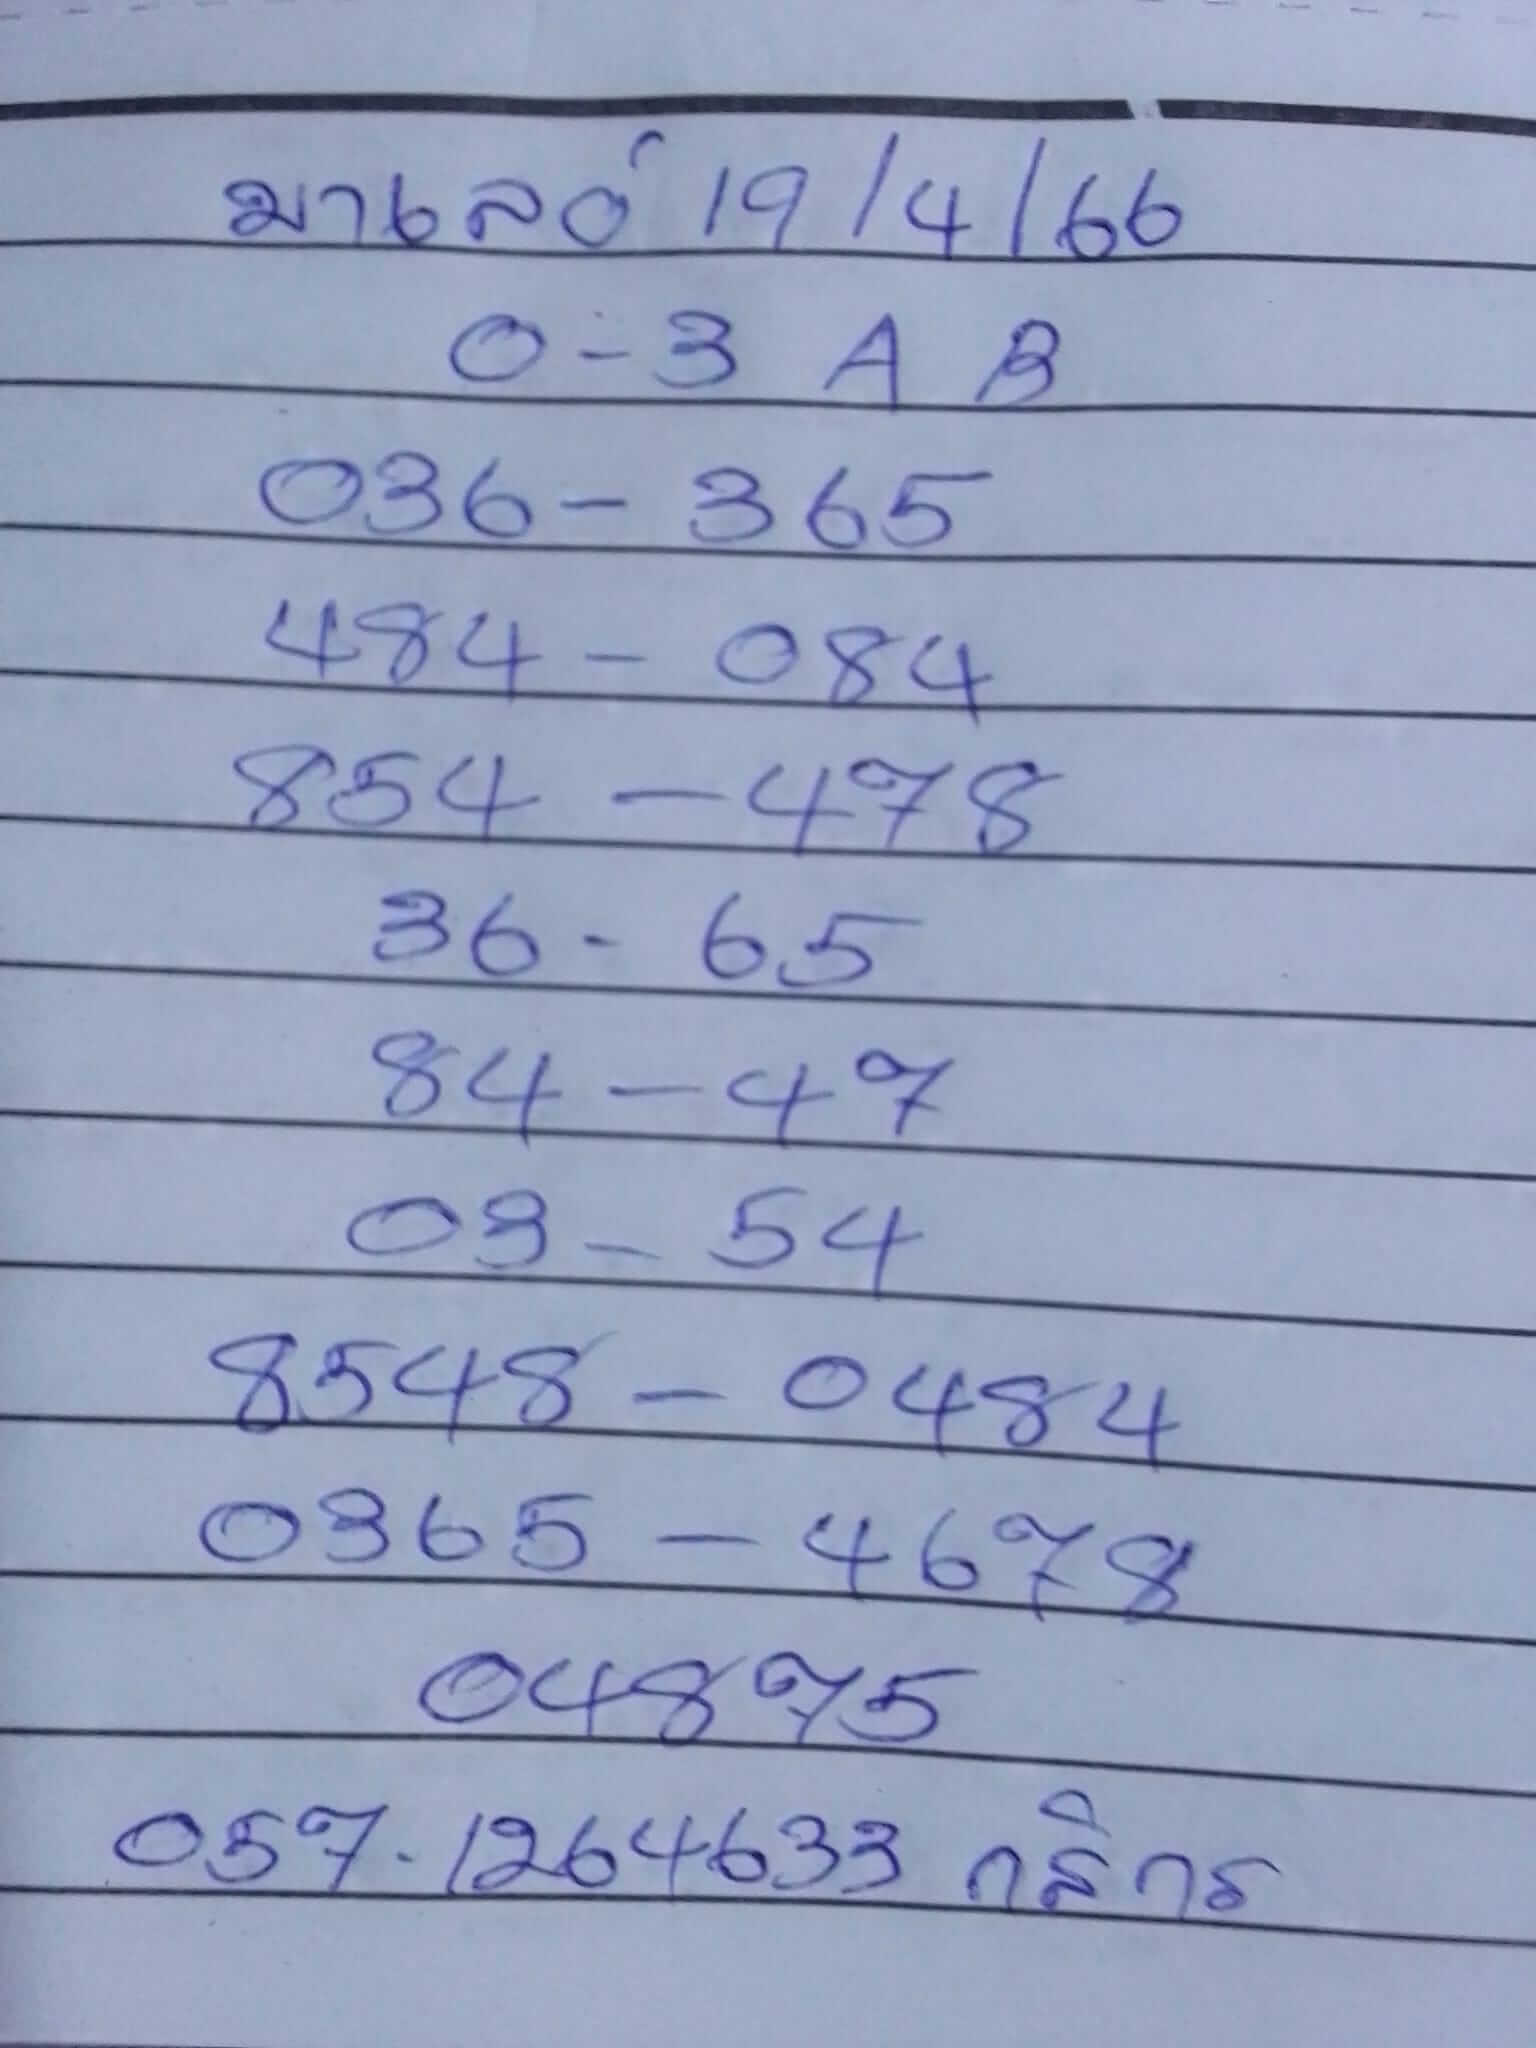 มาเลย์ 19/4/66
0-3 A B
036 - 365
484 - 084
854 - 478
36 - 65
84 - 47
03 - 54
8548 - 0484
0365 - 4678
04875
057-1264633 กสิกร